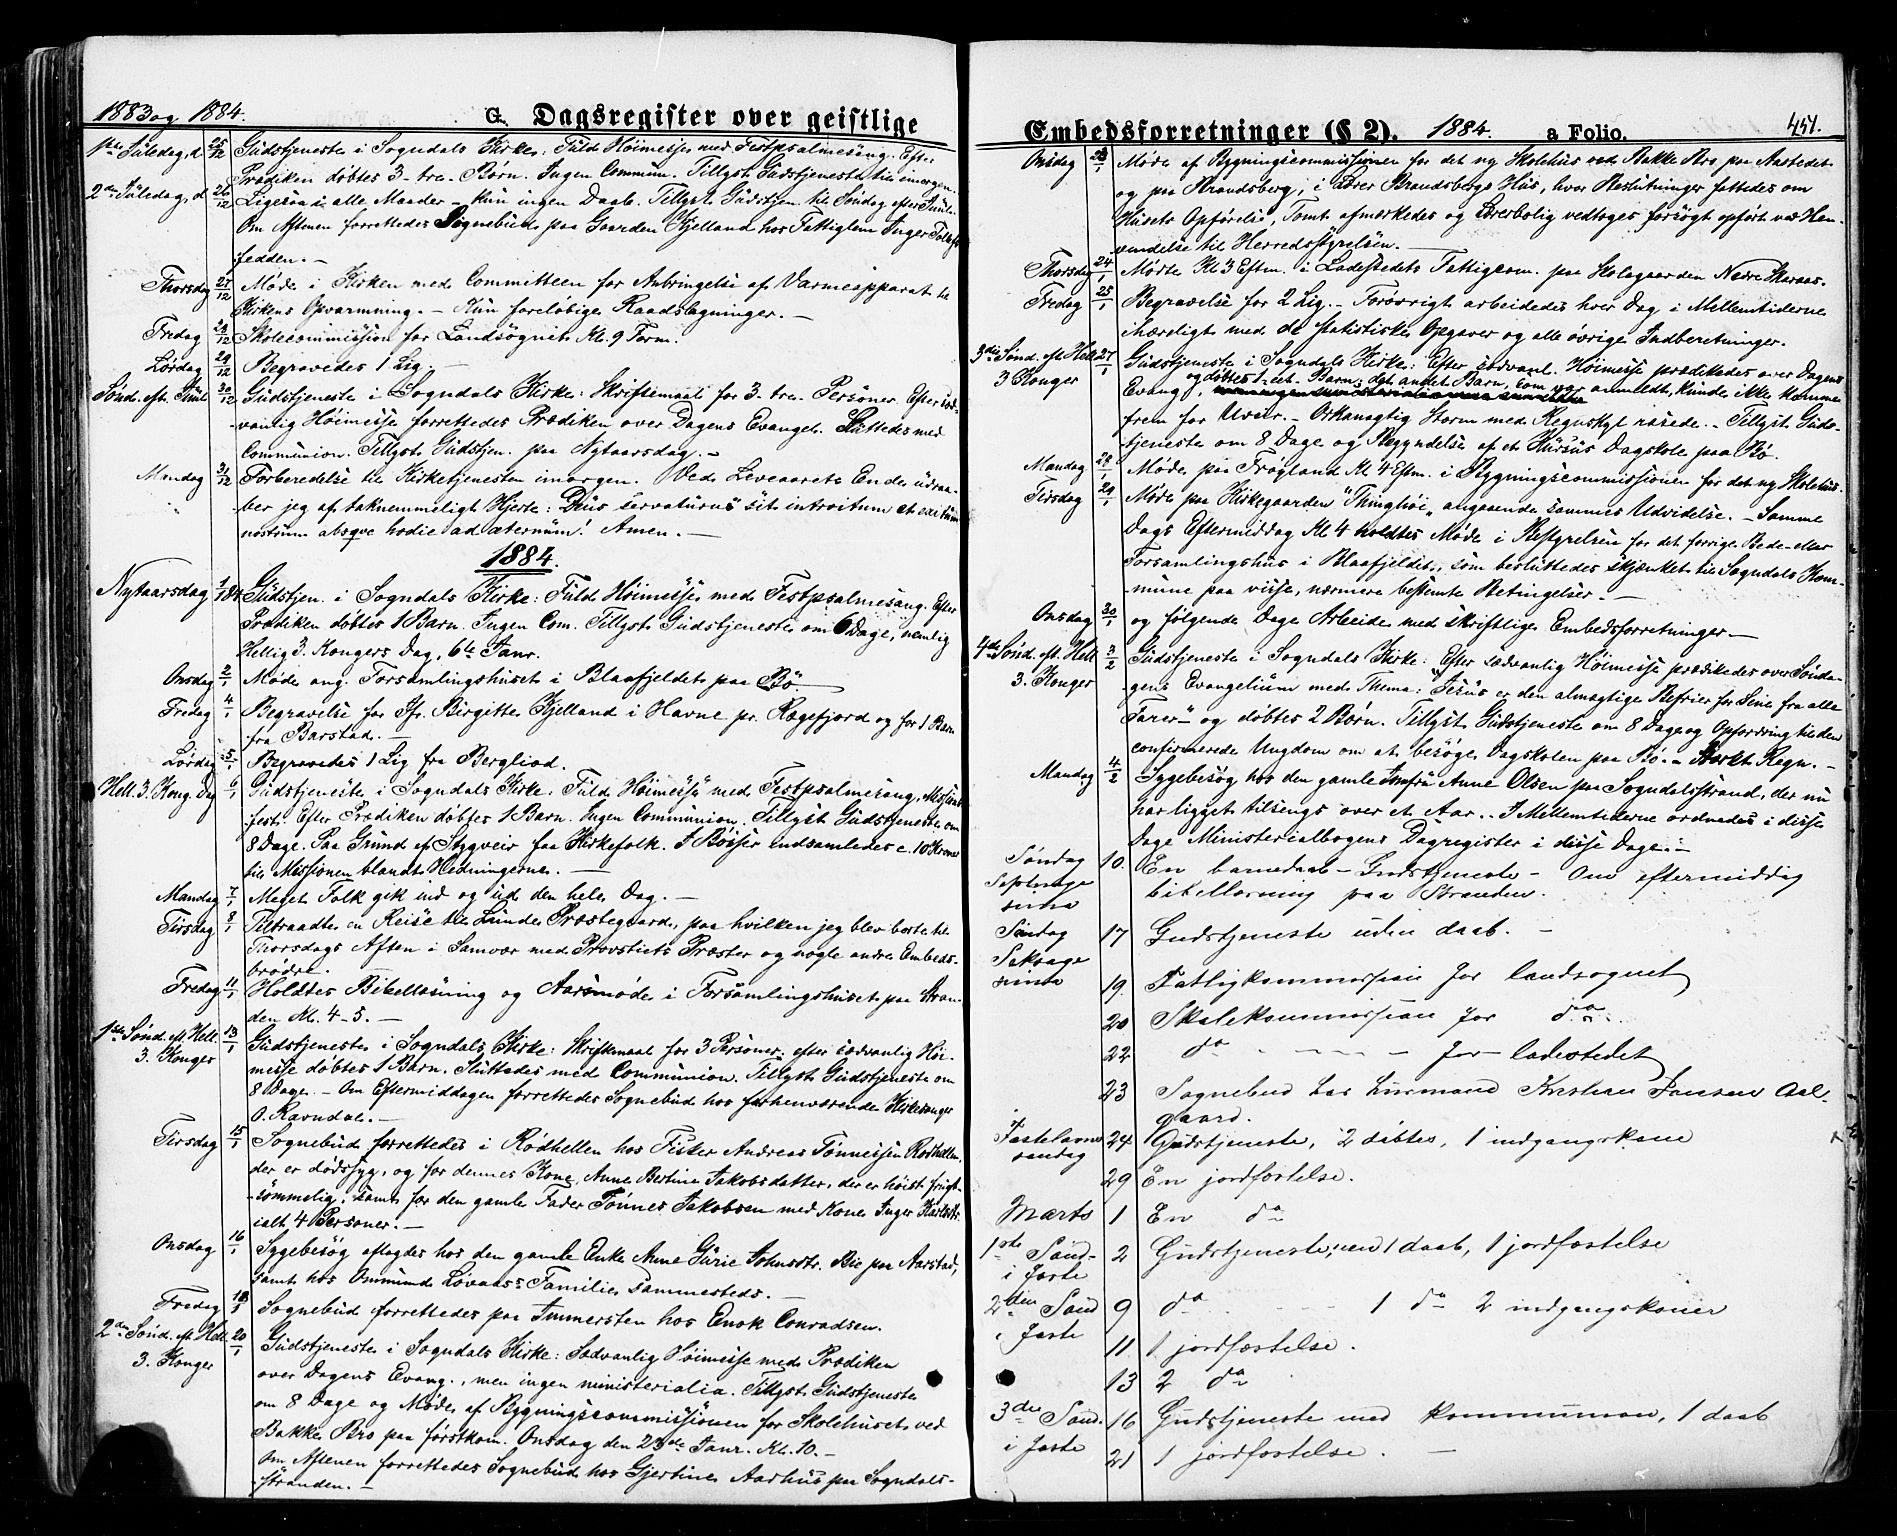 1883 og 1884.
G. Dagsregister over geistlige
1ste Juledag, d. 25/12 Gudstjeneste i Sogndals Kirke: Fuld Høimesse med Festpsalmesang. Efter
Prædiken døbtes 3 - tre - Børn. Ingen Commun. Tillyst Gudstjeneste til imorgen.
2den Juledag, d. 26/12 Ligesaa i alle Maader - kun ingen Daab. Tillyst Gudstjen. til Søndag efter Juul.
Om Aftenen forrettedes Sognebud paa Gaarden Kjelland hos Fattiglem Inger
fedden. -
Thorsdag 27/12 Møde i Kirken med Committeen for Anbringelse af Varmeapparat til
Kirkens Opvarmning. - Kun foreløbige Raadslagninger. -
Fredag 28/12 Skolecommission for Landsognet Kl. 9 Form.
Lørdag 29/12 Begravedes 1 Lig. -
Sønd. eft. Juul 30/12 Gudstjeneste i Sogndals Kirke: Skriftemaal for 3 - tre - Personer. Efter sæd-
vanlig Høimesse forrettedes Prædiken over Dagens Evangel. Sluttedes med
Communion. Tillyst Gudstjen. paa Nytaarsdag. -
Mandag 31/12 Forberedelse til Kirketjenesten imorgen. Ved Leveaarets Ende udraa-
ber jeg af taknemmeligt Hjerte: Deus servaturus sit introitum et exitum
nostrum absqve hodie ad æternum! Amen. -
1884.
Nytaarsdag 1/1 84 Gudstjen. i Sogndals Kirke: Fuld Høimesse med Festpsalmesang. Efter
Prædiken døbtes 1 Barn. Ingen Com. Tillyst Gudstjeneste om 6 Dage, nemlig
Hellig 3. Kongers Dag, 6te Janr.
Onsdag 2/1 Møde ang. Forsamlingshuset i Blaafjeldet paa Bø.
Fredag 4/1 Begravelse for Fr. Birgitte Kjelland i Havne pr. Rægefjord og for 1 Barn
fra Barstad. -
Lørdag 5/1 Begravedes 1 Lig fra Bergliod.
Hell. 3. Kong. Dag 6/1 Gudstjeneste i Sogndals Kirke: Fuld Høimesse med Festpsalmesang, Missions-
fest. Efter Prædiken døbtes 1 Barn. Ingen Communion. Tillyst Gudstjeneste om
8 Dage. Paa Grund af Stygveir faa Kirkefolk. I Bøsser indsamledes c. 10 Kroner
til Missionen blandt Hedningerne. -
Mandag 7/1 Meget Folk gik ind og ud den hele Dag. -
Tirsdag 8/1 Tiltraadte en Reise til Lunde Præstegaard, paa hvilken jeg blev borte til
Thorsdags Aften i Samvær med Provstiets Præster og nogle andre Embeds-
brødre.
Fredag 11/1 Holdtes Bibellæsning og Aarsmøde i Forsamlingshuset paa Stran-
den Kl. 4-5. -
1ste Sønd. eft. Hell. 13/1 Gudstjeneste i Sogndals Kirke: Skriftemaal for 3 Personer, efter sædvanlig Høi-
3. Konger messe døbtes 1 Barn. Sluttedes med Communion. Tillyst Gudstjeneste om
8 Dage. - Om Eftermiddagen forrettedes Sognebud hos forhenværende Kirkesanger
O. Ravndal. -
Tirsdag 15/1 Sognebud forrettedes i Rødhellen hos Fisker Andreas Tønnessen Rødhellen,
der er dødssyg, og for dennes Kone, Anne Bertine Jakobsdatter, der er høist frugt-
sommelig, samt for den gamle Fader Tønnes Jakobsen med Kone Inger
ialt 4 Personer. -
Onsdag 16/1 Sygebesøg aflagdes hos den gamle Enke Anne Gurie Johnsdtr. Bie paa Aarstad,
samt hos Ommund Løvaas's Familie sammesteds. -
Fredag 18/1 Sognebud forrettedes paa Immersten hos Enok Conradsen.
2den Sønd. eft. Hell. 20/1 Gudstjeneste i Sogndals Kirke: Sædvanlig Høimesse med Prædiken
3. Konger over Dagens Evang., men ingen ministerialia. Tillyst Gudstjeneste
om 8 Dage og Møde af Bygningscommissionen for Skolehuset ved
Bakke Bro paa førstkom. Onsdag den 23de Janr. Kl. 10. -
Om Aftenen forrettedes Sognebud hos Gjertine Aarhus paa Sogndals-
stranden. -
Embedsforretninger (§ 2). 1884. a Folio. 451.
Onsdag 23/1 Møde af Bygningscommissionen for det ny Skolehus ved Bakke Bro paa Aastedet
og paa Brandsberg, i Lærer Brandsbergs Hus, hvor Beslutninger fattedes om
Husets Opførelse, Tomt afmærkedes og Lærerbolig vedtoges forsøgt opført ved Hen-
vendelse til Herredsstyrelsen. -
Thorsdag 24/1 Møde Kl. 3 Eftm. i Ladestedets Fattigcom. paa Skolegaarden Nedre Skaraas.
Fredag 25/1 Begravelse for 2 Lig. - Forøvrigt arbeidedes hver Dag i Mellemtiderne
ihærdigt med de statistiske Opgaver og alle øvrige Indberetninger.
3die Sønd. eft. Hell. 27/1 Gudstjeneste i Sogndals Kirke: Efter sædvanl. Høimesse prædikedes over Dagens
3 Konger Evang., og døbtes 1 - et - Barn; det andet Barn, som var anmeldt, kunde ikke komme
frem for Uveir. - Orkanagtig Storm med Regnskyl rasede. - Tillyst Guds-
tjeneste om 8 Dage og Begyndelse af et Kursus Dagskole paa Bø.
Mandag 28/1 Møde paa Frøyland Kl. 4 Eftm. i Bygningscommissionen for det ny Skolehus.
Tirsdag 29/1 Møde paa Kirkegaarden "Thinghøi" angaaende sammes Udvidelse. - Samme
Dags Eftermiddag Kl. 4 holdtes Møde i Bestyrelsen for det forrige Bede- eller
Forsamlingshus i Blaafjeldet, som besluttedes skjænket til Sogndals Kom-
mune paa visse, nærmere bestemte Betingelser. -
Onsdag 30/1 og følgende Dage Arbeide med skriftlige Embedsforretninger -
4de Sønd. eft. Hell. 3/2 Gudstjeneste i Sogndals Kirke: Efter sædvanlig Høimesse prædikedes over Sønda-
3. Konger gens Evangelium med Thema: Jesus er den almægtige Befrier for Sine fra alle
Farer" og døbtes 2 Børn. Tillyst Gudstjeneste om 8 Dage og Opfordring til den
confirmerede Ungdom om at besøge Dagskolen paa Bø. - Stærkt Regn. -
Mandag 4/2 Sygebesøg hos den gamle Jomfru Anne Olsen paa Sogndalsstrand, der nu
har ligget tilsengs over et Aar. - I Mellemtiderne ordnedes i disse
Dage Ministerialbogens Dagregister i disse Dage. -
Søndag 10. En barnedaab - Gudstjeneste - Om eftermiddag
Septuage bibellæsning paa Stranden.
sima
Søndag 17 Gudstjeneste uden daab. -
Seksage
sima 19. Fattigkommission for landsognet
20 Skolekommission for do
22 do - - - - for ladestedet
23 Sognebud hos husmand Kristian Jansen Aal-
gaard.
Fastelavns 24 Gudstjeneste, 2 døbtes, 1 indgangskone
søndag
29 En jordfæstelse.
Marts 1 En do
1ste Sønd- 2 Gudstjeneste, med 1 daab, 1 jordfæstelse
i Faste
2den Sønd 9 do - - - - 1 do 2 indgangskoner
i Faste 11 1 jordfæstelse.
13 2 do
3die Sønd. 16 Gudstjeneste med kommunion, 1 daab
i Faste 21 1 jordfæstelse. -